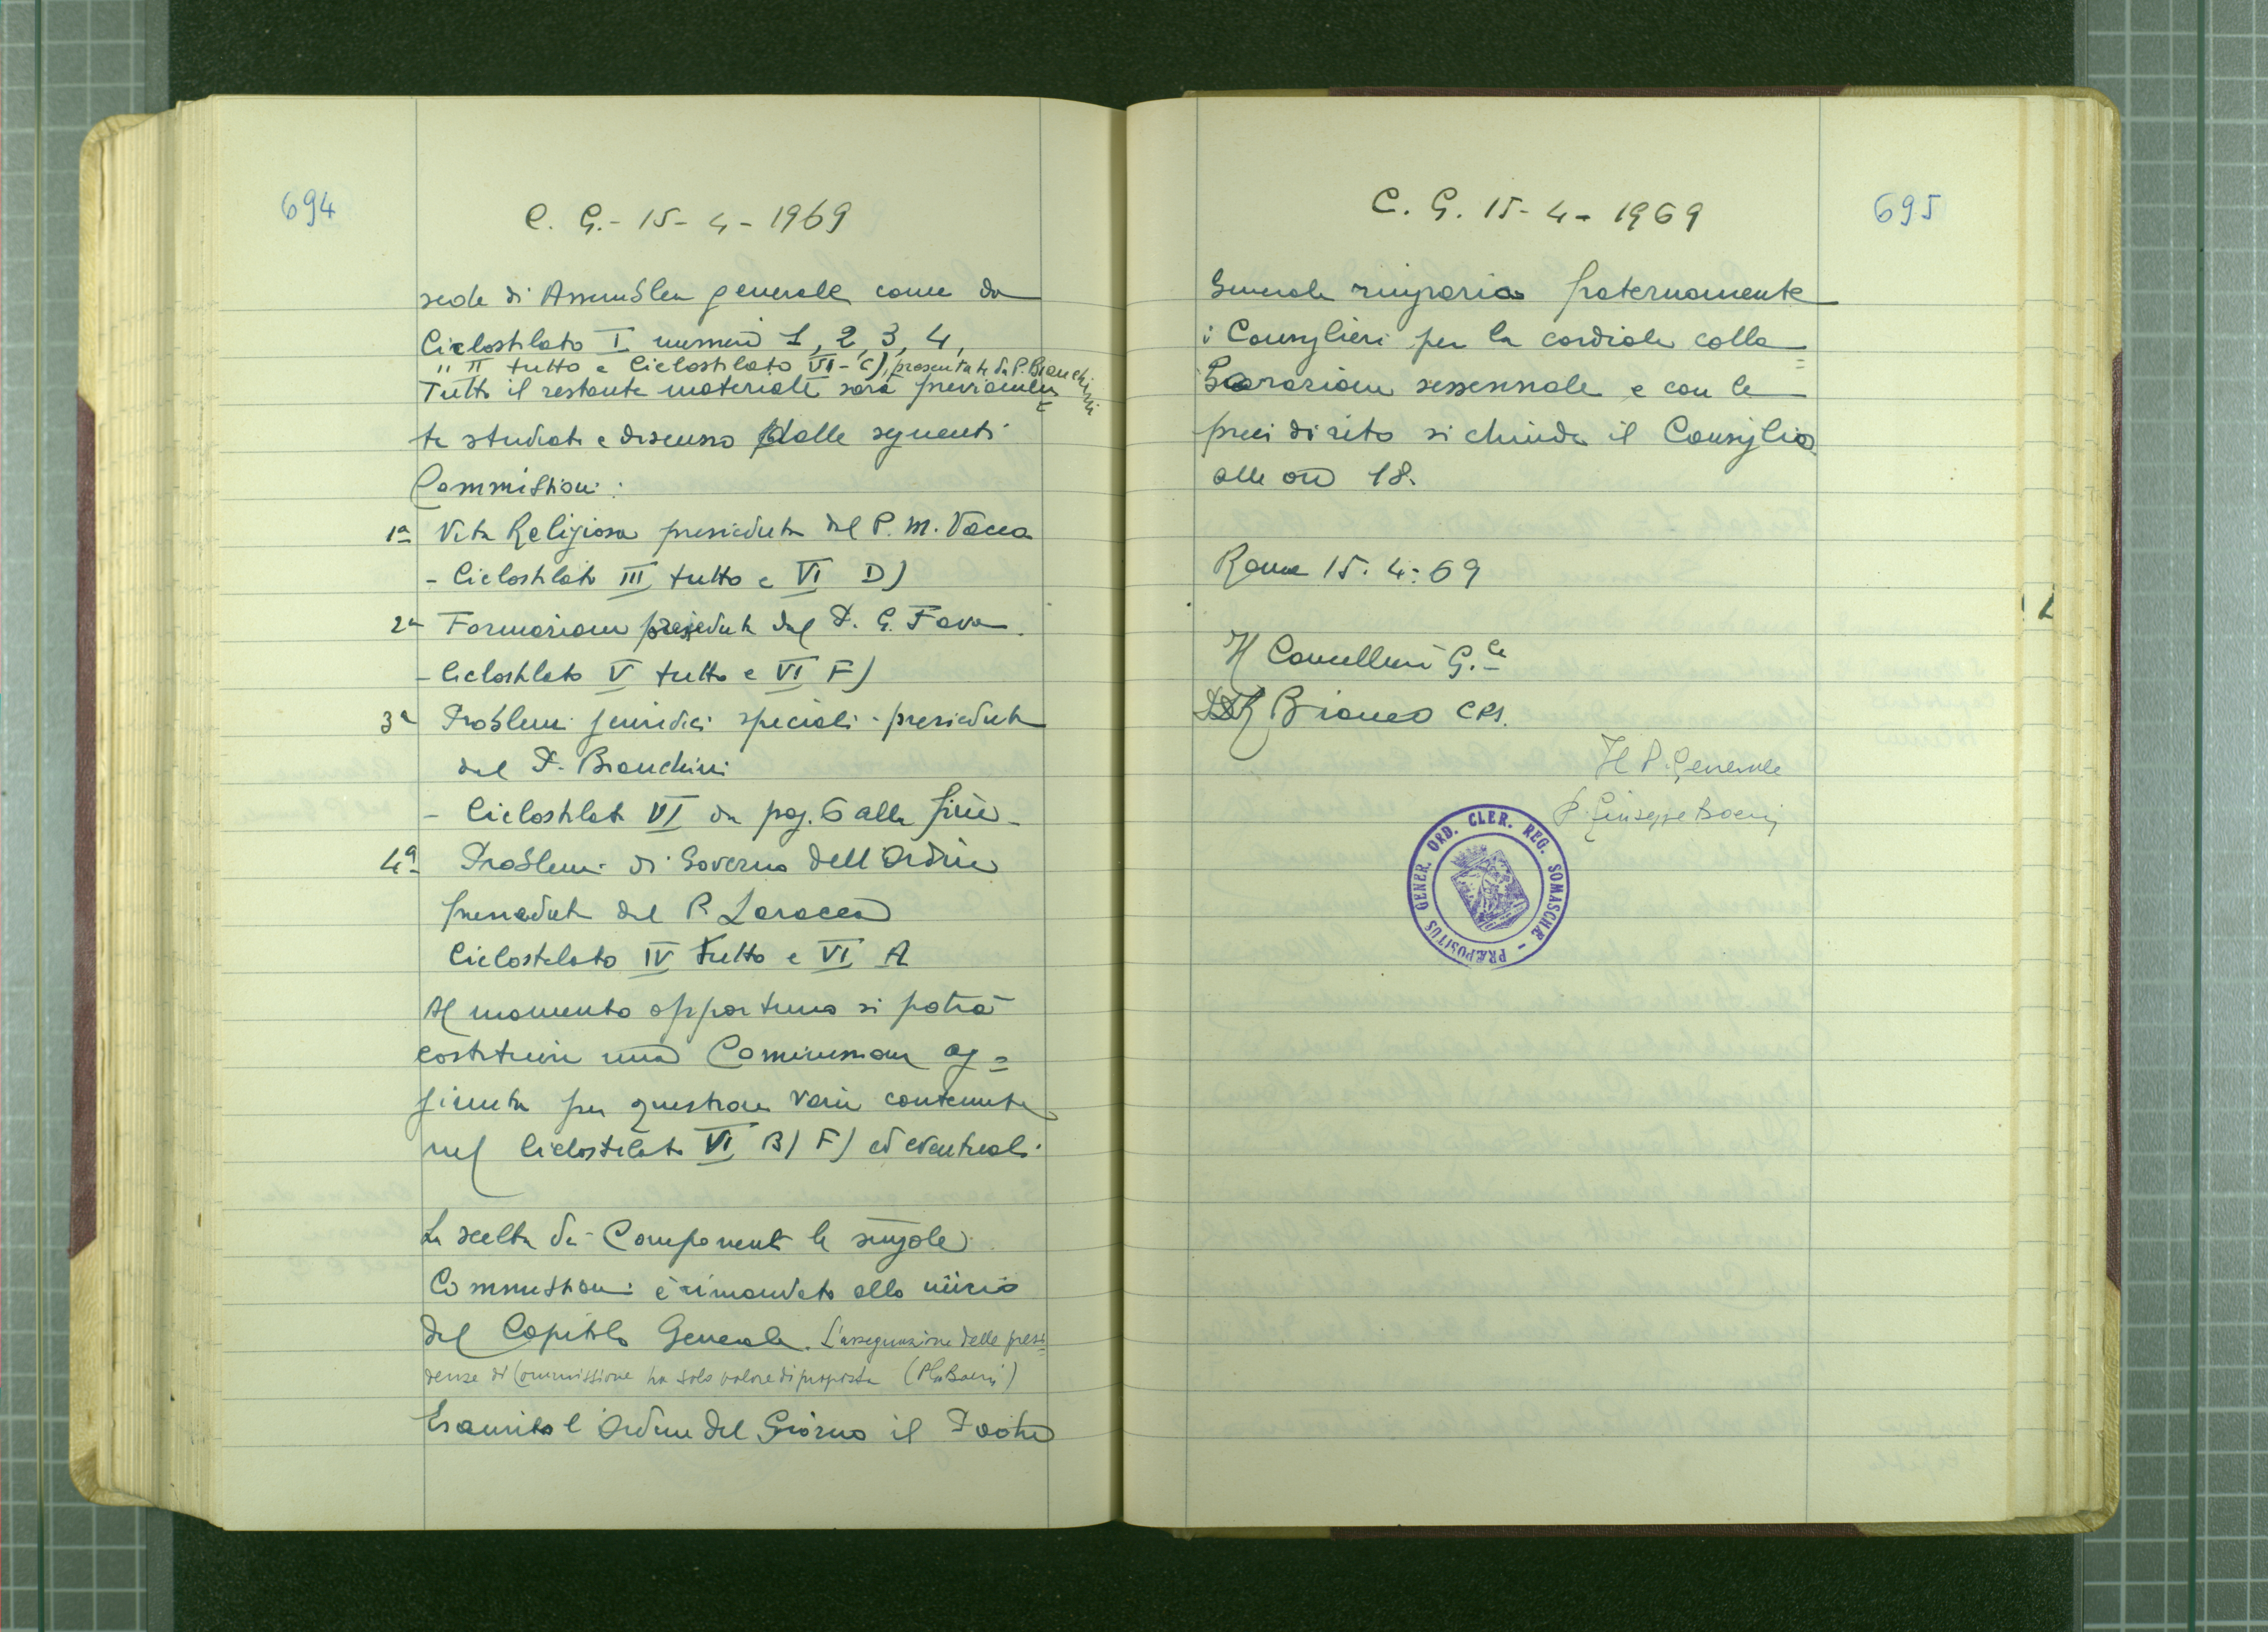 694
C. G. - 15 - 4 - 1969
sede di Assemblea generale come da
Ciclostilato I numeri 1, 2, 3, 4,
" II tutto e Ciclostilato VI - C), presentate da P. Bianchini
Tutto il restante materiale sarà previamen=
te studiato e discusso dalle seguenti
Commissioni:
1ª Vita Religiosa presieduta dal P. M. Vacca
- Ciclostilato III tutto e VI D)
2ª Formazione presieduta dal P. G. Fava.
- Ciclostilato V tutto e VI F)
3ª Problemi giuridici speciali - presieduta
dal P. Bianchini
- Ciclostilato VI da pag. 6 alla fine -
4ª Problemi di Governo dell'Ordine
presieduta dal P. Laracca
Ciclostilato IV tutto e VI A
Al momento opportuno si potrà
costituire una Commissione ag=
giunta per questioni varie contenute
nel Ciclostilato VI B) F) ed eventuali.
La scelta dei Componenti le singole
Commissioni è rimandata allo inizio
del Capitolo Generale. L'assegnazione delle presi=
denze di Commissione ha solo valore di proposta (P. G. Boeri)
Esaurito l'Ordine del Giorno il Padre
C. G. 15 - 4 - 1969
695
Generale ringrazia paternamente
i Consiglieri per la cordiale colla=
borazione sessennale e con le
preci di rito si chiude il Consiglio
alle ore 18.
Roma 15. 4. 69
Il Cancelliere G.le
Bianco CRS.
Il P. Generale
P. Giuseppe Boeri
PRÆPOSITUS GENER. ORD. CLER. REG. SOMASCHÆ -